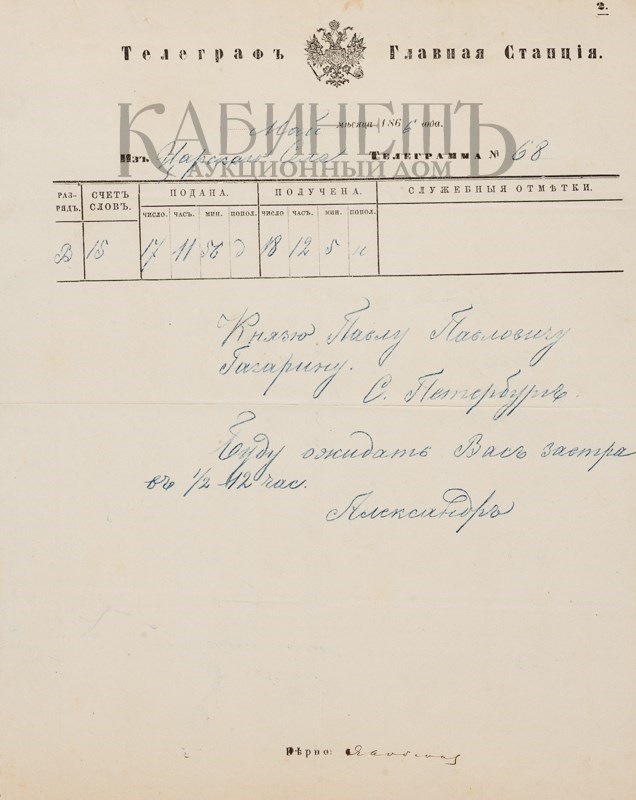 2.
Телеграфъ Главная Станція.
КАБИНЕТЪ
АУКЦИОННЫЙ ДОМ
Май мѣсяца 1866 года.
Изъ Царскаго Села Телеграмма № 68
РАЗ-РЯДЪ. СЧЕТЪ СЛОВЪ. ПОДАНА. ПОЛУЧЕНА. СЛУЖЕБНЫЯ ОТМѢТКИ.
ЧИСЛО. ЧАСЪ. МИН. ПОПОЛ. ЧИСЛО ЧАСЪ. МИН. ПОПОЛ.
В 15 17 11 56 д 18 12 5 н
Князю Павлу Павловичу
Гагарину.
С. Петербургъ.
Буду ожидать Васъ завтра
въ 1/2 12 час.
Александръ
Вѣрно: